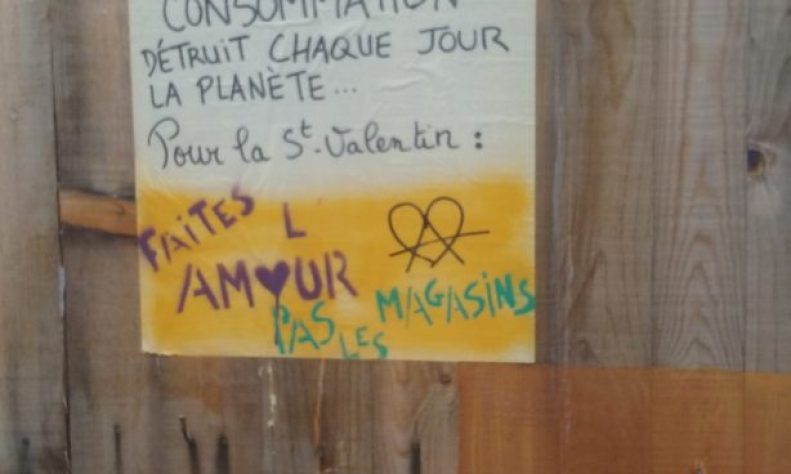 CONSOMMATION
DÉTRUIT CHAQUE JOUR
LA PLANÈTE...
Pour la St-Valentin :
FAITES L
AMOUR
PAS LES MAGASINS